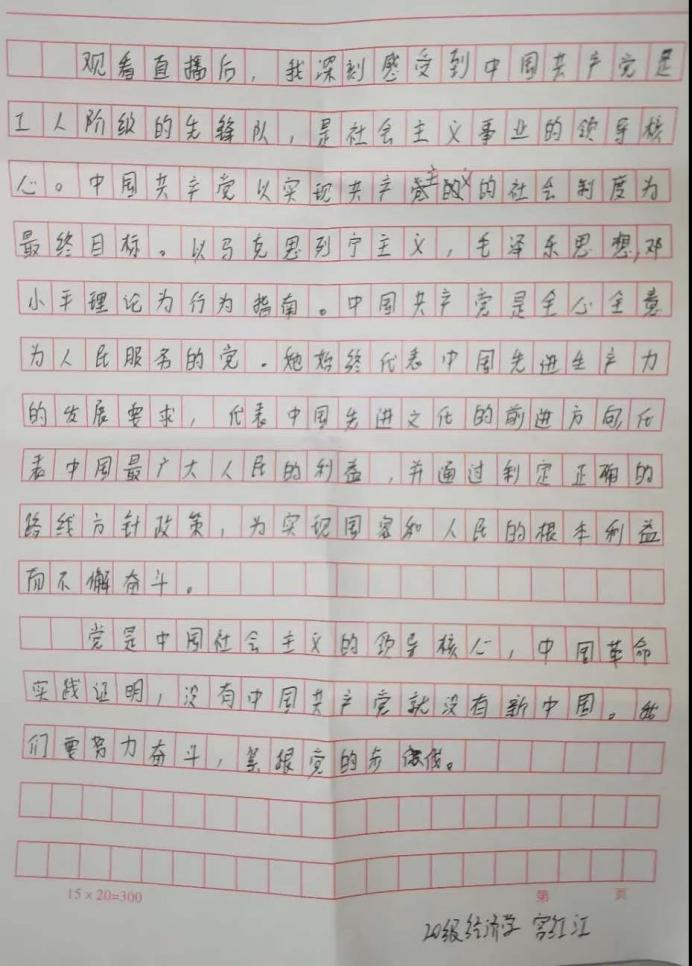 观看直播后，我深刻感受到中国共产党是
工人阶级的先锋队，是社会主义事业的领导核
心。中国共产党以实现共产主义的社会制度为
最终目标。以马克思列宁主义，毛泽东思想，邓
小平理论为行为指南。中国共产党是全心全意
为人民服务的党。她始终代表中国先进生产力
的发展要求，代表中国先进文化的前进方向，代
表中国最广大人民的利益，并通过制定正确的
路线方针政策，为实现国家和人民的根本利益
而不懈奋斗。
党是中国社会主义的领导核心，中国革命
实践证明，没有中国共产党就没有新中国。我
们要努力奋斗，紧跟党的步伐。
15×20=300 第 页
20级经济学 红江